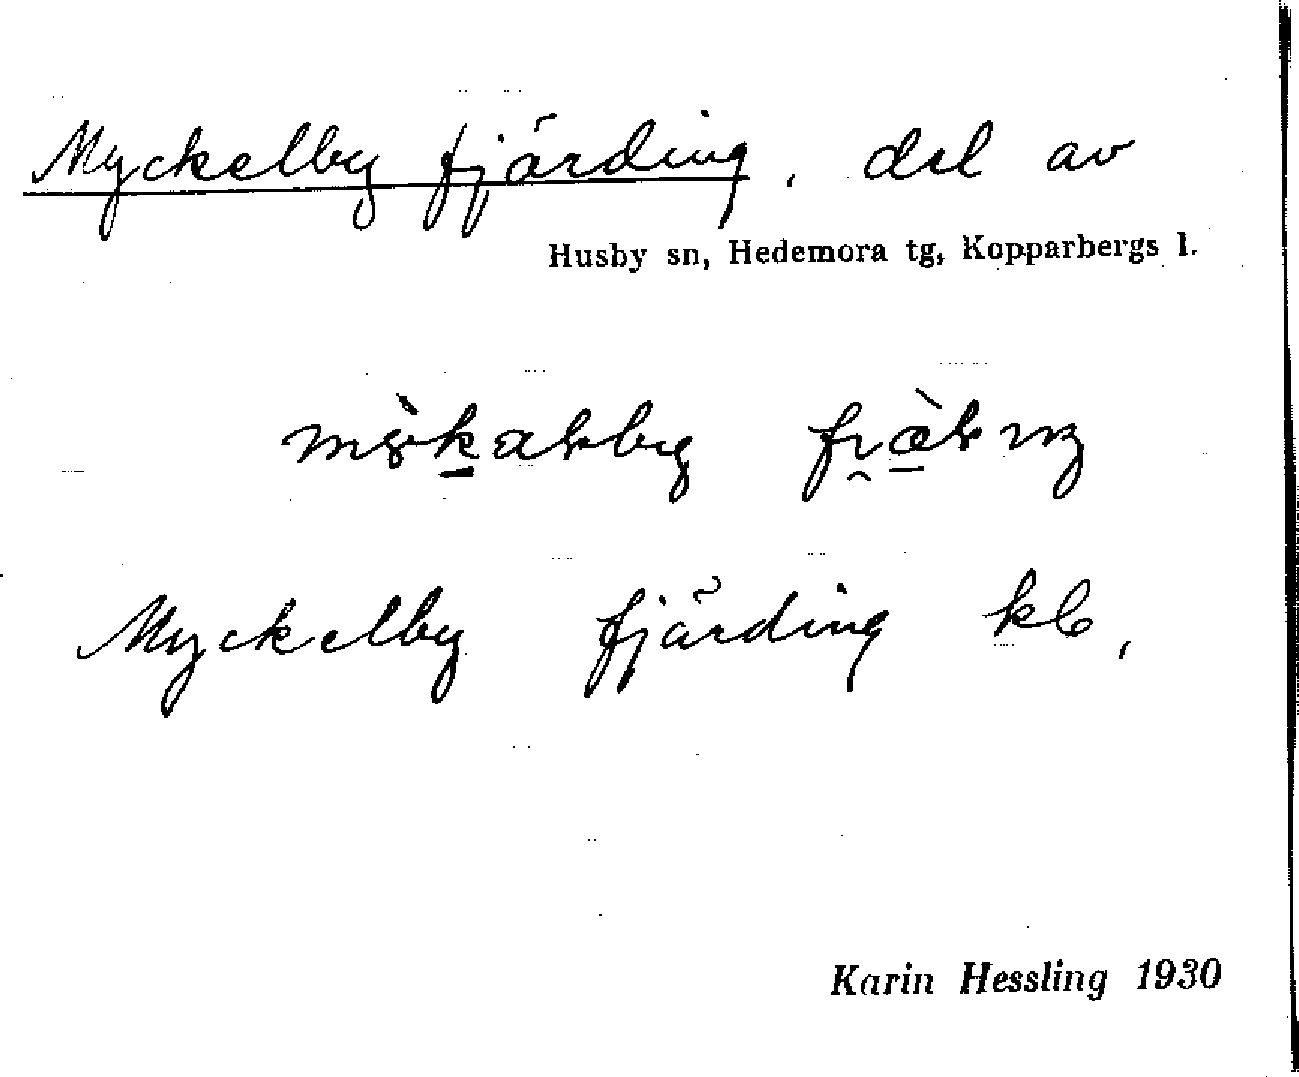 Myckelby fjärding, del av
Husby sn, Hedemora tg, Kopparbergs l.
Myckelby fjärding kb,
Karin Hessling 1930